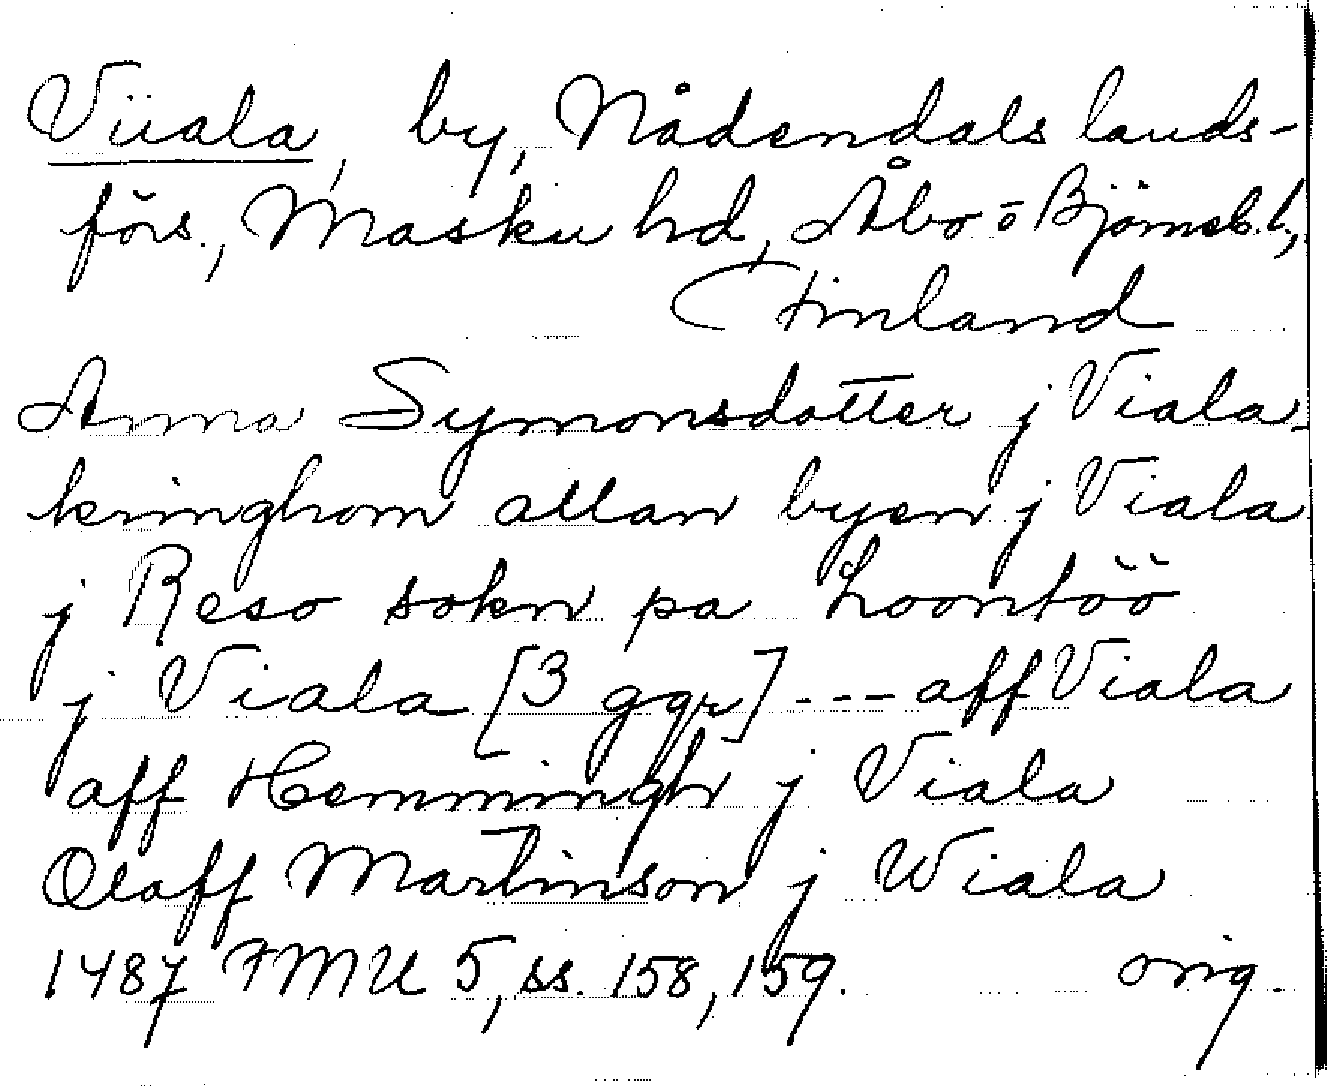 Viiala, by, Nådendals lands-
förs., Masku hd, Åbo o Björneb. l.,
Finland
Anna Symonsdotter j Viala
kringhom allan byen j Viala
j Reso sokn pa Loontöö
j Viala [3 ggr] --- aff Viala
aff Hemmingh j Viala
Olaff Martinson j Wiala
1487 FMU 5, ss. 158, 159. orig.